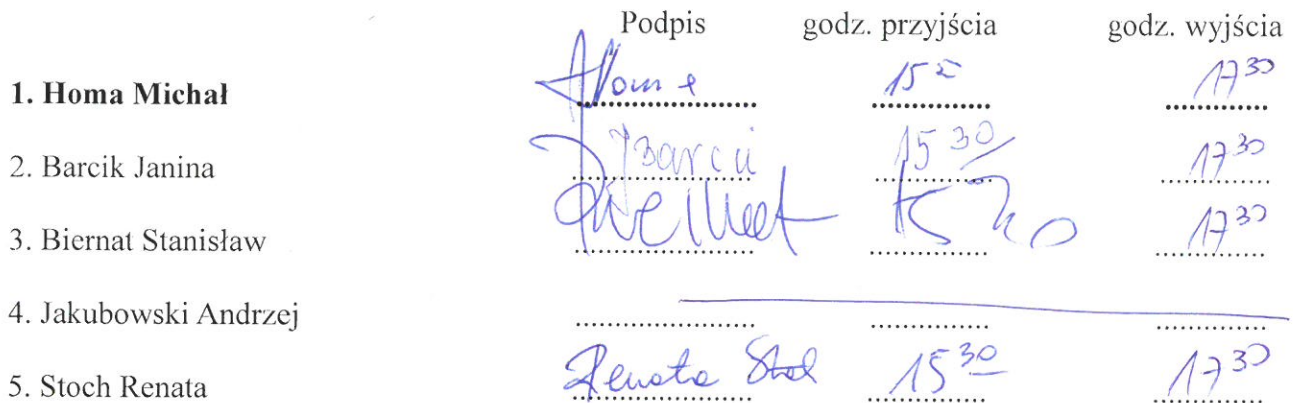 Podpis godz. przyjścia godz. wyjścia
1. Homa Michał Homa 17 30
2. Barcik Janina JBarcik 15 30 17 30
3. Biernat Stanisław 17 30
4. Jakubowski Andrzej
5. Stoch Renata Renata Stoch 15 30 17 30